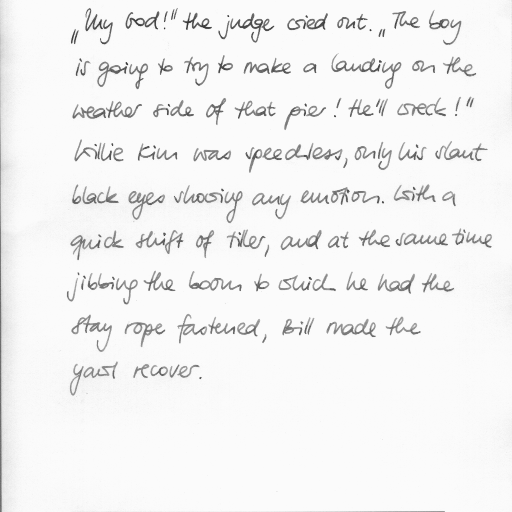 „My God!“ the judge cried out. „The boy
is going to try to make a landing on the
weather side of that pier! He'll wreck!“
Willie Kim was speechless, only his slant
black eyes showing any emotion. With a
quick shift of tiller, and at the same time
jibbing the boom to which he had the
stay rope fastened, Bill made the
yawl recover.